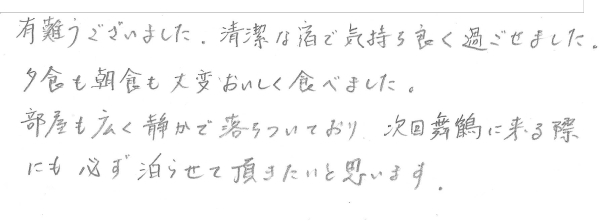 有難うございました。清潔な宿で気持ち良く過ごせました。
夕食も朝食も大変おいしく食べました。
部屋も広く静かで落ちついており 次回舞鶴に来る際
にも 必ず泊らせて頂きたいと思います。